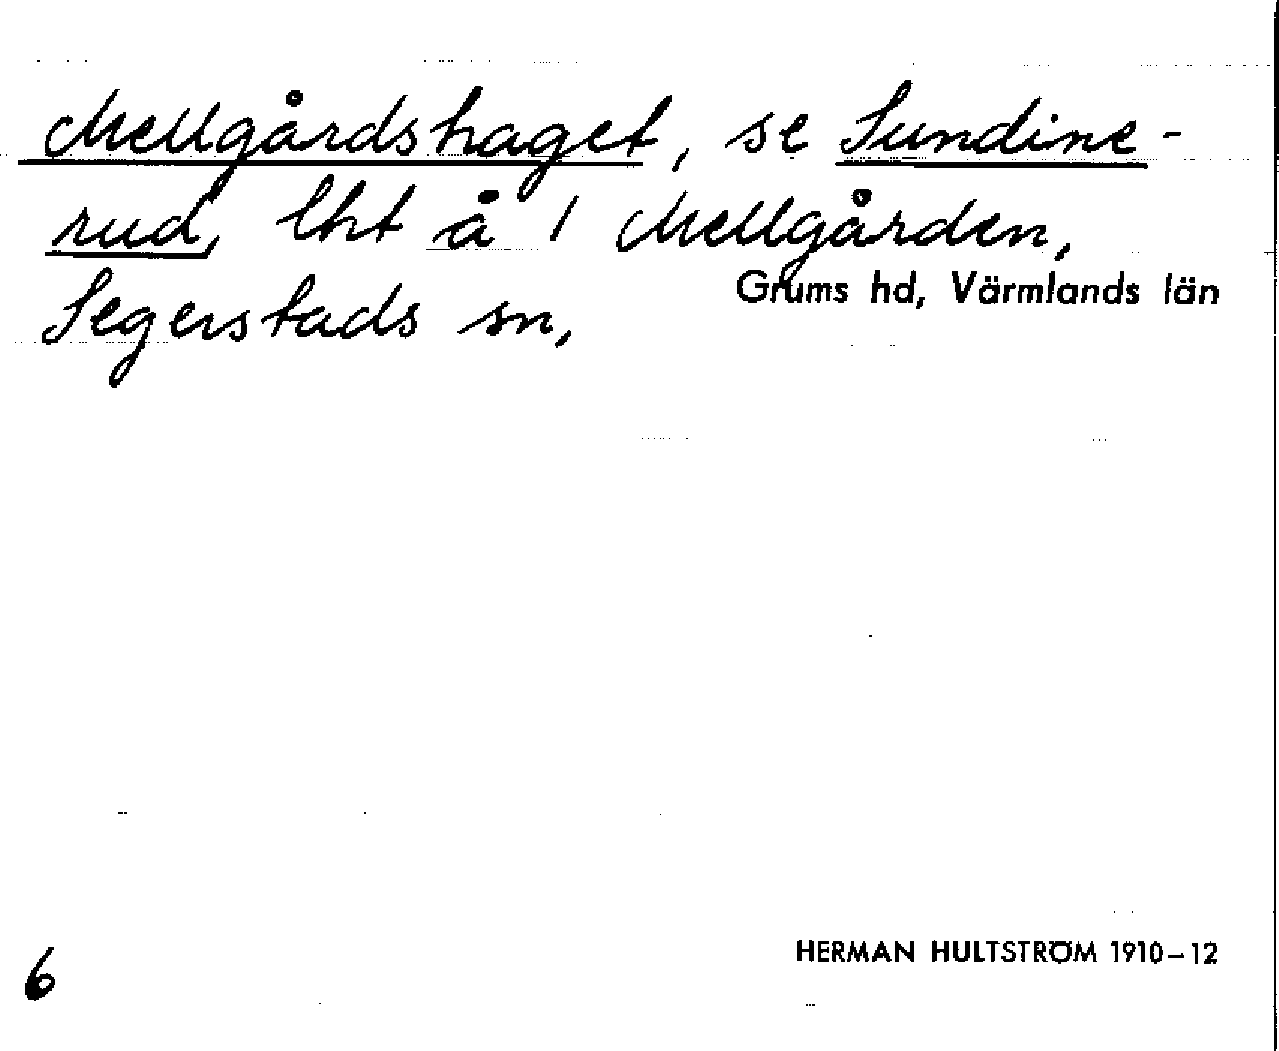 Mellgårdshaget, se Sundine-
rud, lht å 1 Mellgården,
Segerstads sn, Grums hd, Värmlands län
6
HERMAN HULTSTRÖM 1910-12